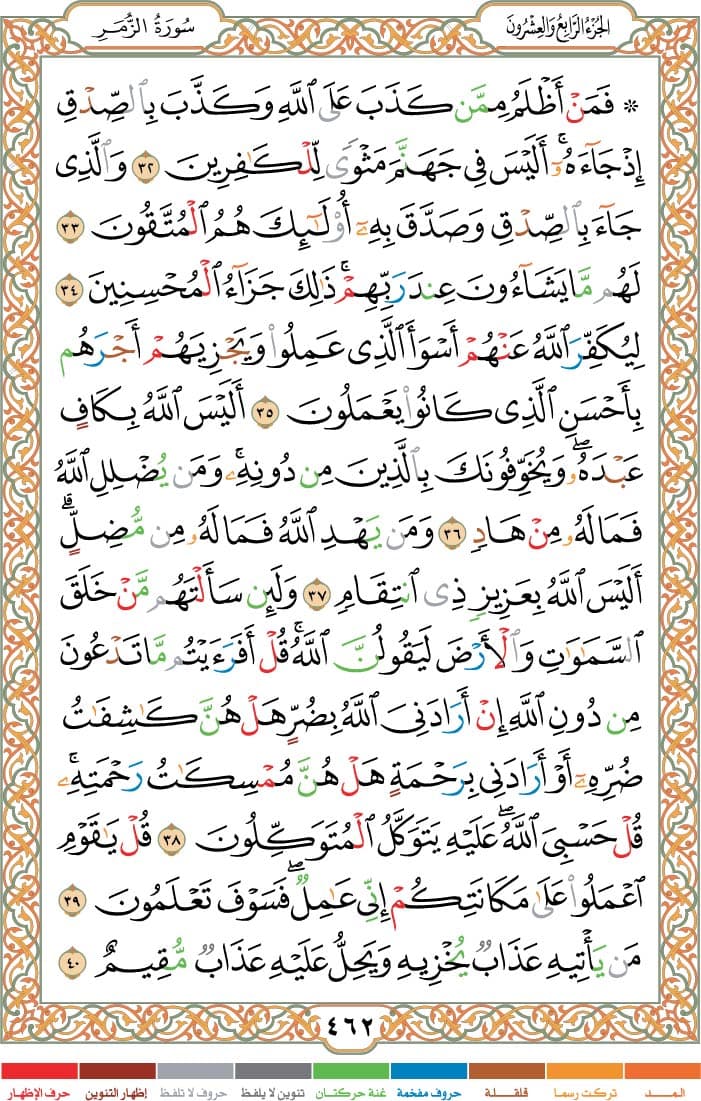 الجزء الرابع والعشرون
سورة الزمر
۞ فَمَنْ أَظْلَمُ مِمَّن كَذَبَ عَلَى ٱللَّهِ وَكَذَّبَ بِٱلصِّدْقِ
إِذْ جَآءَهُۥٓ ۚ أَلَيْسَ فِى جَهَنَّمَ مَثْوًى لِّلْكَٰفِرِينَ ٣٢ وَٱلَّذِى
جَآءَ بِٱلصِّدْقِ وَصَدَّقَ بِهِۦٓ أُو۟لَٰٓئِكَ هُمُ ٱلْمُتَّقُونَ ٣٣
لَهُم مَّا يَشَآءُونَ عِندَ رَبِّهِمْ ۚ ذَٰلِكَ جَزَآءُ ٱلْمُحْسِنِينَ ٣٤
لِيُكَفِّرَ ٱللَّهُ عَنْهُمْ أَسْوَأَ ٱلَّذِى عَمِلُوا۟ وَيَجْزِيَهُمْ أَجْرَهُم
بِأَحْسَنِ ٱلَّذِى كَانُوا۟ يَعْمَلُونَ ٣٥ أَلَيْسَ ٱللَّهُ بِكَافٍ
عَبْدَهُۥ ۖ وَيُخَوِّفُونَكَ بِٱلَّذِينَ مِن دُونِهِۦ ۚ وَمَن يُضْلِلِ ٱللَّهُ
فَمَا لَهُۥ مِنْ هَادٍ ٣٦ وَمَن يَهْدِ ٱللَّهُ فَمَا لَهُۥ مِن مُّضِلٍّ ۗ
أَلَيْسَ ٱللَّهُ بِعَزِيزٍ ذِى ٱنتِقَامٍ ٣٧ وَلَئِن سَأَلْتَهُم مَّنْ خَلَقَ
ٱلسَّمَٰوَٰتِ وَٱلْأَرْضَ لَيَقُولُنَّ ٱللَّهُ ۚ قُلْ أَفَرَءَيْتُم مَّا تَدْعُونَ
مِن دُونِ ٱللَّهِ إِنْ أَرَادَنِىَ ٱللَّهُ بِضُرٍّ هَلْ هُنَّ كَٰشِفَٰتُ
ضُرِّهِۦٓ أَوْ أَرَادَنِى بِرَحْمَةٍ هَلْ هُنَّ مُمْسِكَٰتُ رَحْمَتِهِۦ ۚ
قُلْ حَسْبِىَ ٱللَّهُ ۖ عَلَيْهِ يَتَوَكَّلُ ٱلْمُتَوَكِّلُونَ ٣٨ قُلْ يَٰقَوْمِ
ٱعْمَلُوا۟ عَلَىٰ مَكَانَتِكُمْ إِنِّى عَٰمِلٌ ۖ فَسَوْفَ تَعْلَمُونَ ٣٩
مَن يَأْتِيهِ عَذَابٌ يُخْزِيهِ وَيَحِلُّ عَلَيْهِ عَذَابٌ مُّقِيمٌ ٤٠
٤٦٢
المـد تركت رسما قلقلة حروف مفخمة غنة حركتان تنوين لا يلفظ حروف لا تلفظ إظهار التنوين حرف الإظهار